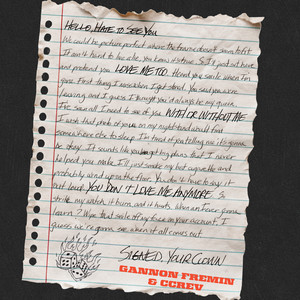 HELLO, HATE TO SEE YOU
We could be picture perfect where the frame doesn't
It ain't hard to be alone, you know it's true. So I'd just sit here
and pretend you LOVE ME TOO. Heard you smile when I'm
gone. First thing
leaving and I guess I
I've saw all I need to see of you WITH OR WITHOUT ME
I wish that photo of you on my nightstand would find
somewhere else to sleep I'm tired of pretending it's gonna
be okay. It sounds like you got big plans that I never
helped you make, I'll just smoke my last cigarette and
probably wind up on the floor. You don't have to say it
out loud YOU DON'T LOVE ME ANYMORE. So
strike my match, it burns, and it hurts. When am I ever gonna
learn? Wipe that smile off my face on your account, I
guess we're gonna see when it all comes out
SIGNED, YOUR CLOWN
GANNON FREMIN
& CCREV